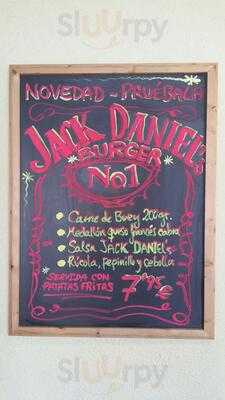 Sluurpy
NOVEDAD - PRUÉBALA
JACK DANIEL'S
BURGER
No1
Carne de Buey 200gr.
Medallón queso francés cabra
Salsa JACK DANIEL'S
Rúcola, pepinillo y cebolla
SERVIDA CON
PATATAS FRITAS
7'95 €
Sluurpy